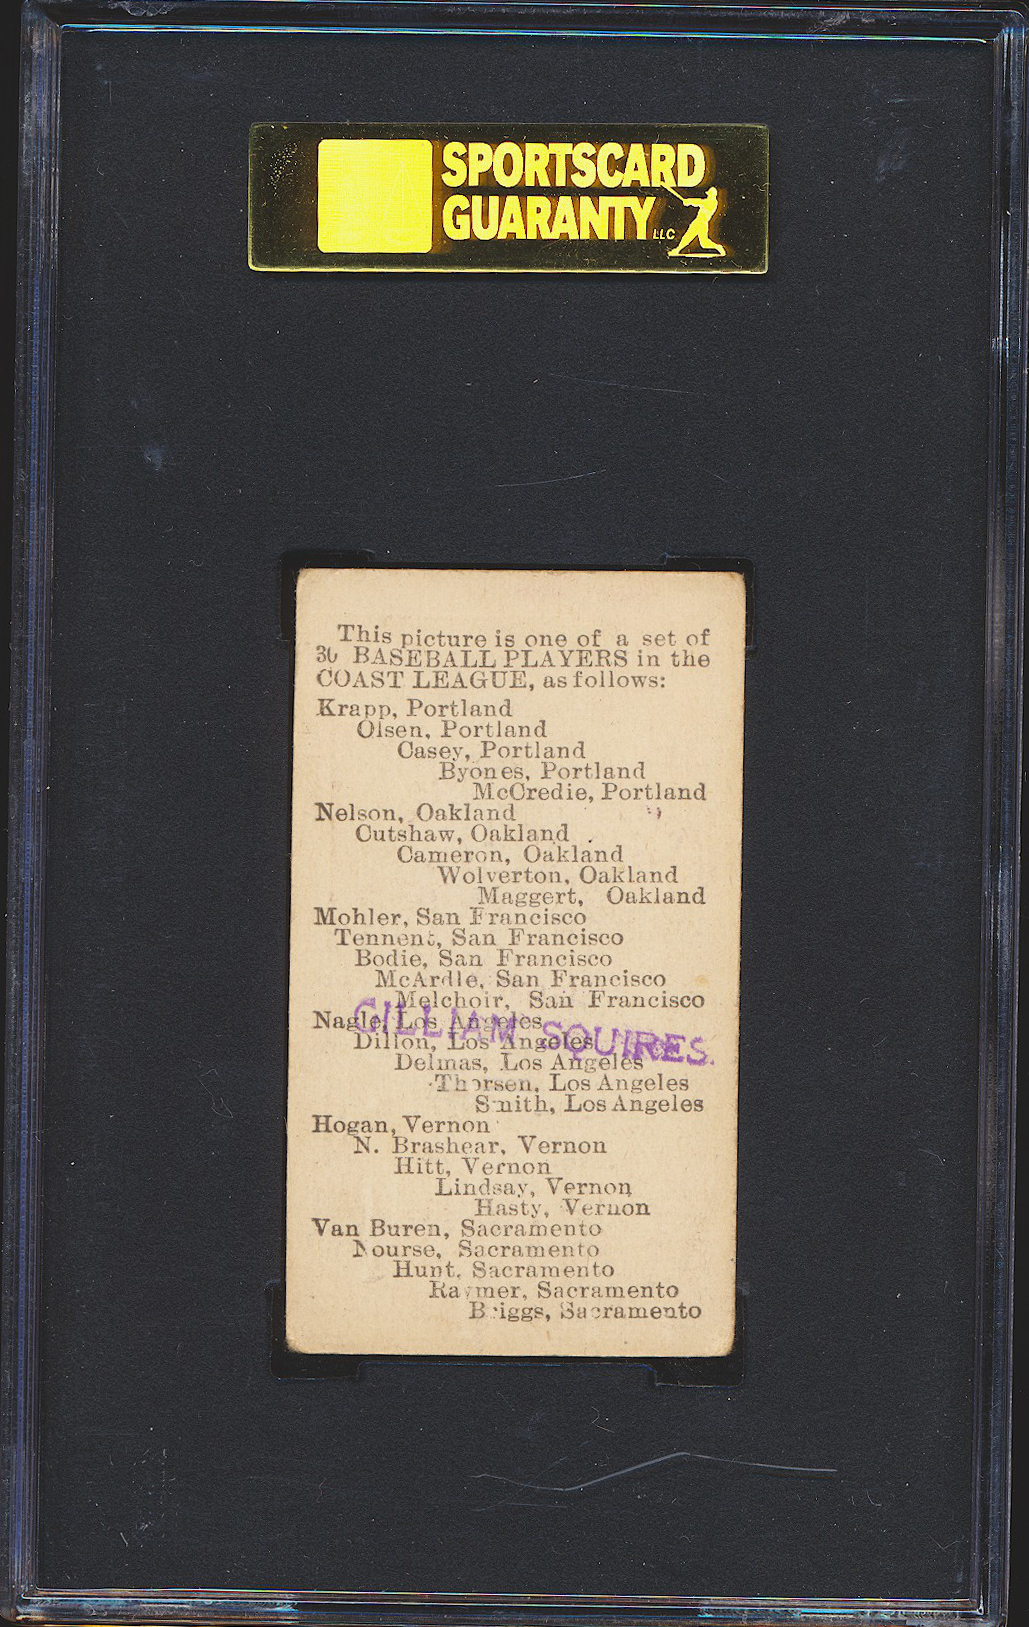 SPORTSCARD
GUARANTY LLC
This picture is one of a set of
30 BASEBALL PLAYERS in the
COAST LEAGUE, as follows:
Krapp, Portland
Olsen, Portland
Casey, Portland
Byones, Portland
McCredie, Portland
Nelson, Oakland
Cutshaw, Oakland
Cameron, Oakland
Wolverton, Oakland
Maggert, Oakland
Mohler, San Francisco
Tennent, San Francisco
Bodie, San Francisco
McArdle, San Francisco
Melchoir, San Francisco
Nagle, Los Angeles
GILLIAM SQUIRES.
Dillon, Los Angeles
Delmas, Los Angeles
Thorsen, Los Angeles
Smith, Los Angeles
Hogan, Vernon
N. Brashear, Vernon
Hitt, Vernon
Lindsay, Vernon
Hasty, Vernon
Van Buren, Sacramento
Nourse, Sacramento
Hunt, Sacramento
Raymer, Sacramento
Briggs, Sacramento